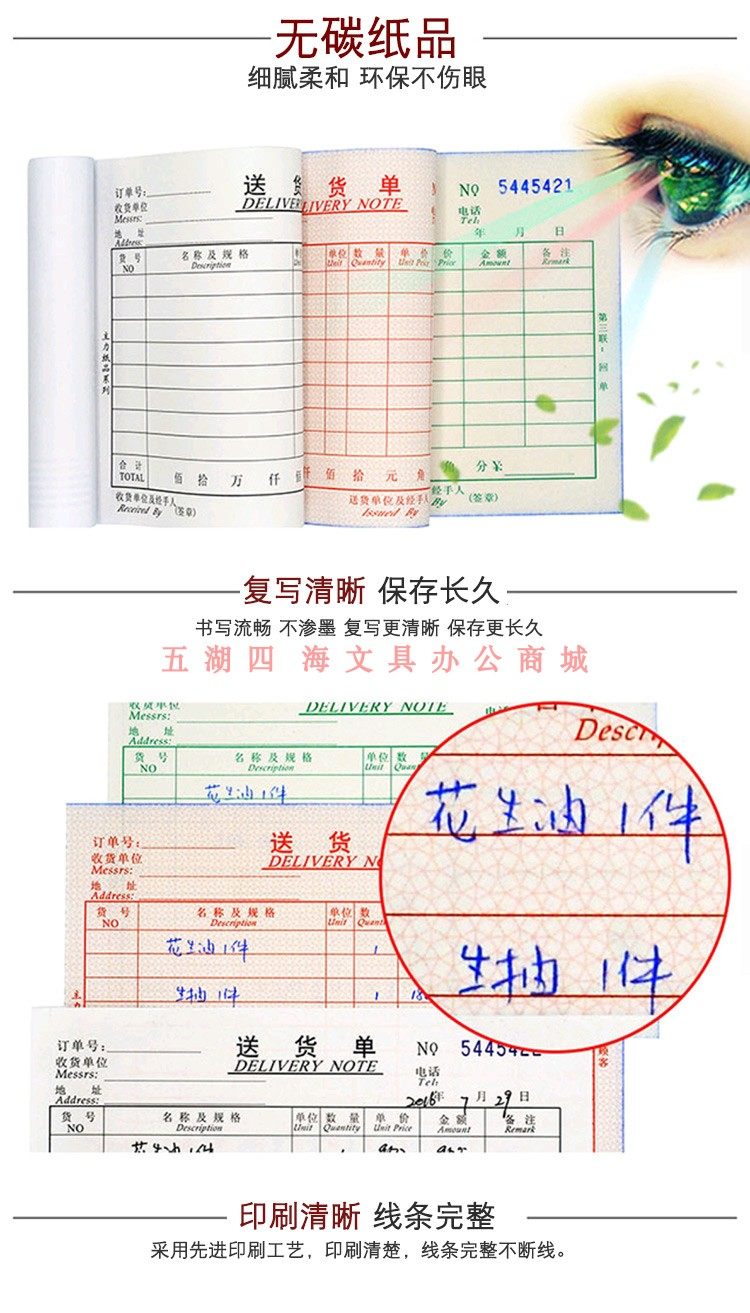 无碳纸品
细腻柔和 环保不伤眼
订单号:
送 货 货 单
DELIVERY NOTE
NO 5445421
收货单位
Messrs:
电话
Tel:
地 址
Address:
年 月 日
货 号 名 称 及 规 格 单位 数 量 单 价 价 金 额 备 注
NO Description Unit Quantity Unit Price Price Amount Remark
主力纸品系列
第三联:回单
合 计
TOTAL
佰 拾 万 仟 佰 拾 元 角 分 ¥:
收货单位及经手人
Received By (签章)
送货单位及经手人
Issued By
经手人
By (签章)
复写清晰 保存长久
书写流畅 不渗墨 复写更清晰 保存更长久
五湖四 海文具办公商城
收货单位
Messrs:
DELIVERY NOTE
地 址
Address:
货 号 名 称 及 规 格 单位 数
NO Description Unit Quan
花生油 1件
Descrip
花生油 1件
生抽 1件
订单号:
送 货
DELIVERY NO
收货单位
Messrs:
地 址
Address:
货 号 名 称 及 规 格 单位 数
NO Description Unit Quant
花生油 1件 1
生抽 1件 1
顾客
订单号:
送 货 单
DELIVERY NOTE
NO 5445422
收货单位
Messrs:
电话
Tel:
地 址
Address:
2016年 7月 29日
货 号 名 称 及 规 格 单位 数 量 单 价 金 额 备 注
NO Description Unit Quantity Unit Price Amount Remark
花生油 1件
印刷清晰 线条完整
采用先进印刷工艺，印刷清楚，线条完整不断线。